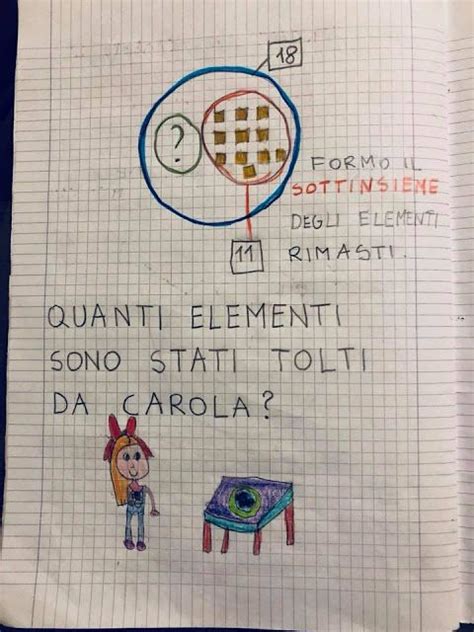 18
?
FORMO IL
SOTTINSIEME
DEGLI ELEMENTI
11 RIMASTI.
QUANTI ELEMENTI
SONO STATI TOLTI
DA CAROLA?